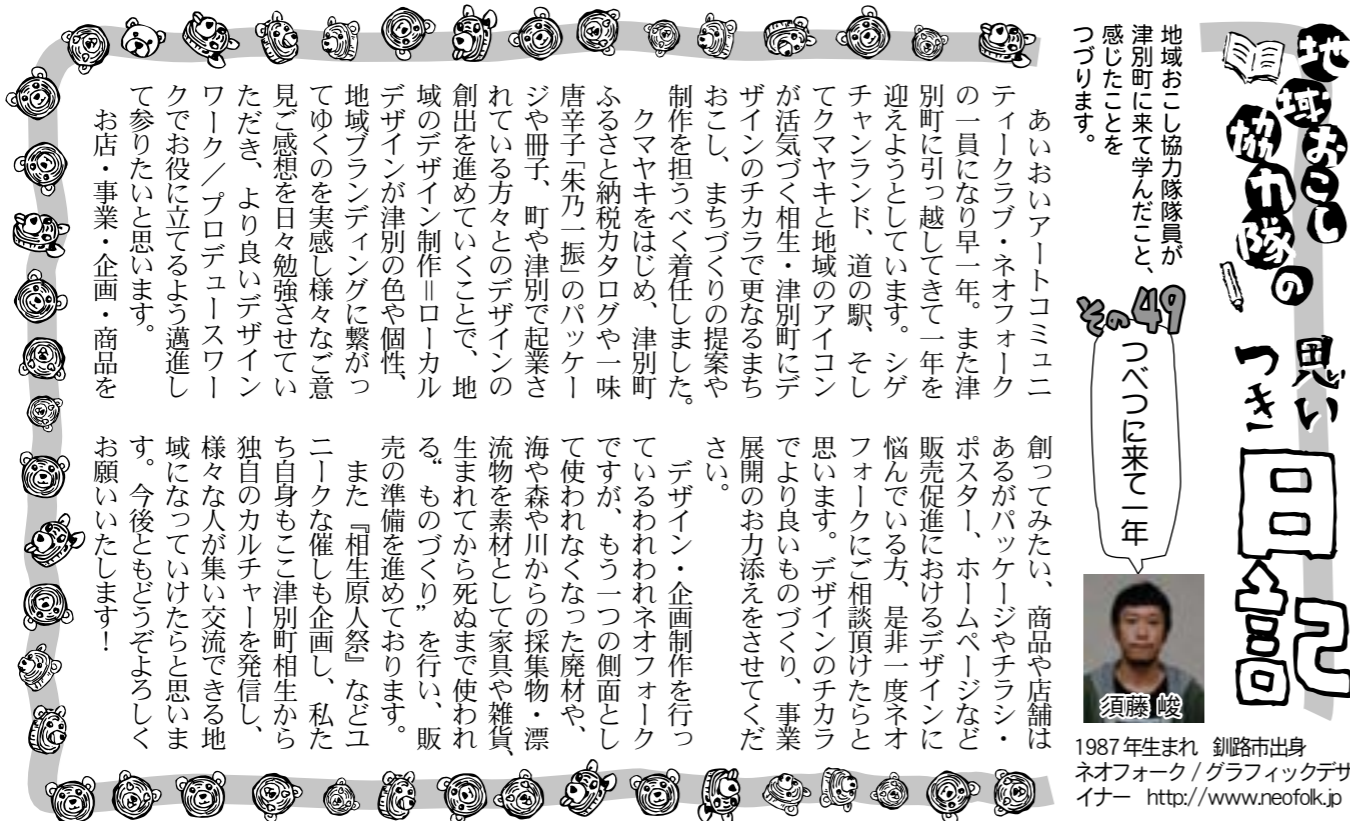 地域おこし
協力隊の
思い
つき
日記
地域おこし協力隊隊員が
津別町に来て学んだこと、
感じたことを
つづります。
その49
つべつに来て一年
須藤 峻
1987年生まれ 釧路市出身
ネオフォーク / グラフィックデザ
イナー http://www.neofolk.jp
あいおいアートコミュニ
ティークラブ・ネオフォーク
の一員になり早一年。また津
別町に引っ越してきて一年を
迎えようとしています。シゲ
チャンランド、道の駅、そし
てクマヤキと地域のアイコン
が活気づく相生・津別町にデ
ザインのチカラで更なるまち
おこし、まちづくりの提案や
制作を担うべく着任しました。
クマヤキをはじめ、津別町
ふるさと納税カタログや一味
唐辛子「朱乃一振」のパッケー
ジや冊子、町や津別で起業さ
れている方々とのデザインの
創出を進めていくことで、地
域のデザイン制作＝ローカル
デザインが津別の色や個性、
地域ブランディングに繋がっ
てゆくのを実感し様々なご意
見ご感想を日々勉強させてい
ただき、より良いデザイン
ワーク／プロデュースワー
クでお役に立てるよう邁進し
て参りたいと思います。
お店・事業・企画・商品を
創ってみたい、商品や店舗は
あるがパッケージやチラシ・
ポスター、ホームページなど
販売促進におけるデザインに
悩んでいる方、是非一度ネオ
フォークにご相談頂けたらと
思います。デザインのチカラ
でより良いものづくり、事業
展開のお力添えをさせてくだ
さい。
デザイン・企画制作を行っ
ているわれわれネオフォーク
ですが、もう一つの側面とし
て使われなくなった廃材や、
海や森や川からの採集物・漂
流物を素材として家具や雑貨、
生まれてから死ぬまで使われ
る“ものづくり”を行い、販
売の準備を進めております。
また『相生原人祭』などユ
ニークな催しも企画し、私た
ち自身もここ津別町相生から
独自のカルチャーを発信し、
様々な人が集い交流できる地
域になっていけたらと思いま
す。今後ともどうぞよろしく
お願いいたします！